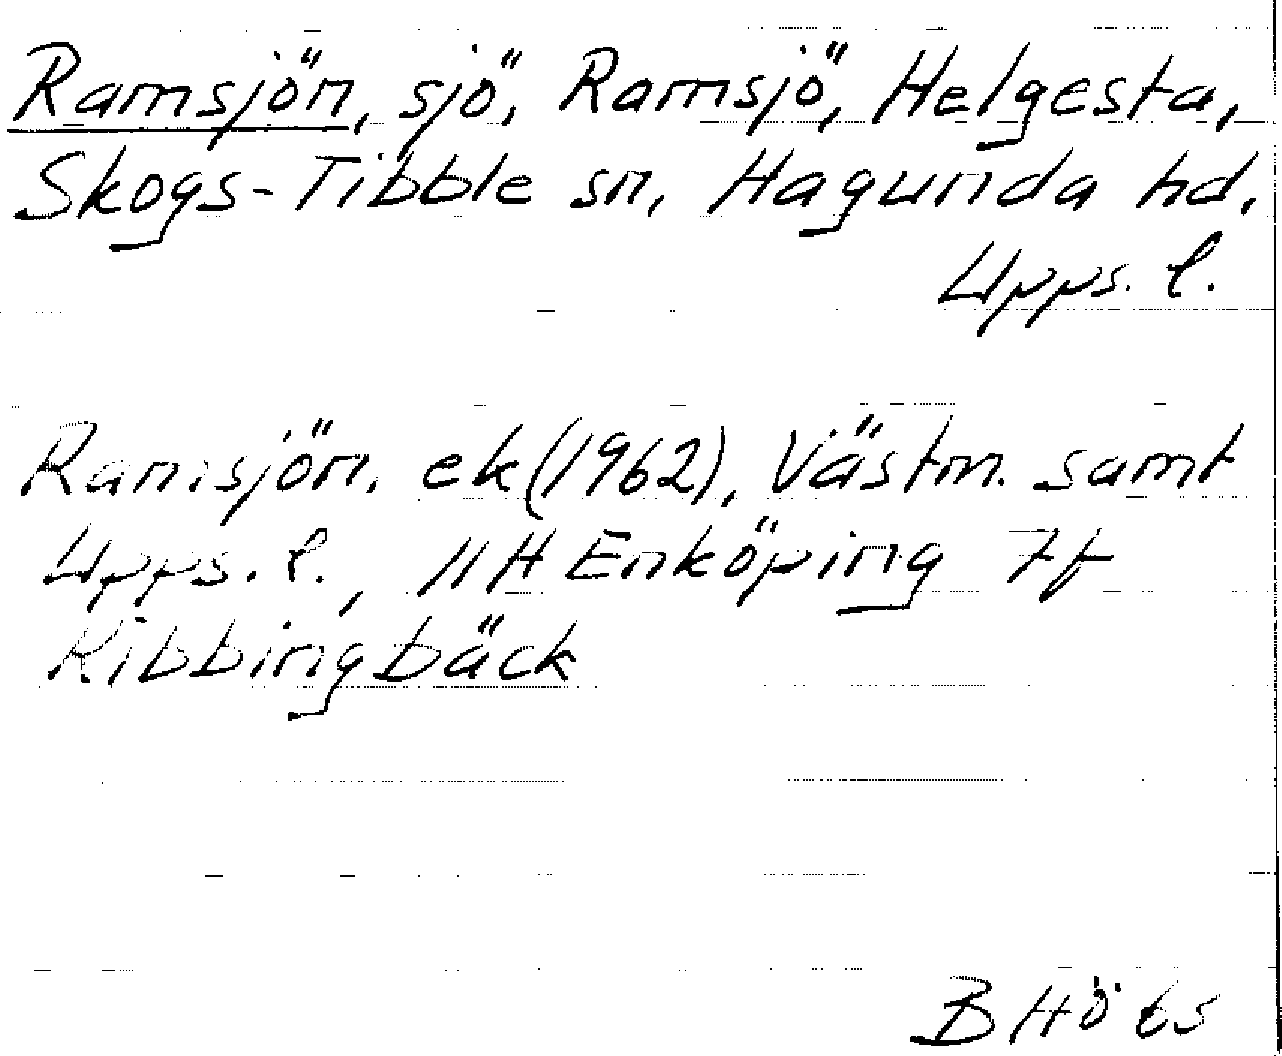 Ramsjön, sjö, Ramsjö, Helgesta,
Skogs-Tibble sn, Hagunda hd,
Upps. l.
Ramsjön, ek (1962), Västm. samt
Upps. l., 11H Enköping 7f
Kibbingbäck
B Hö ts